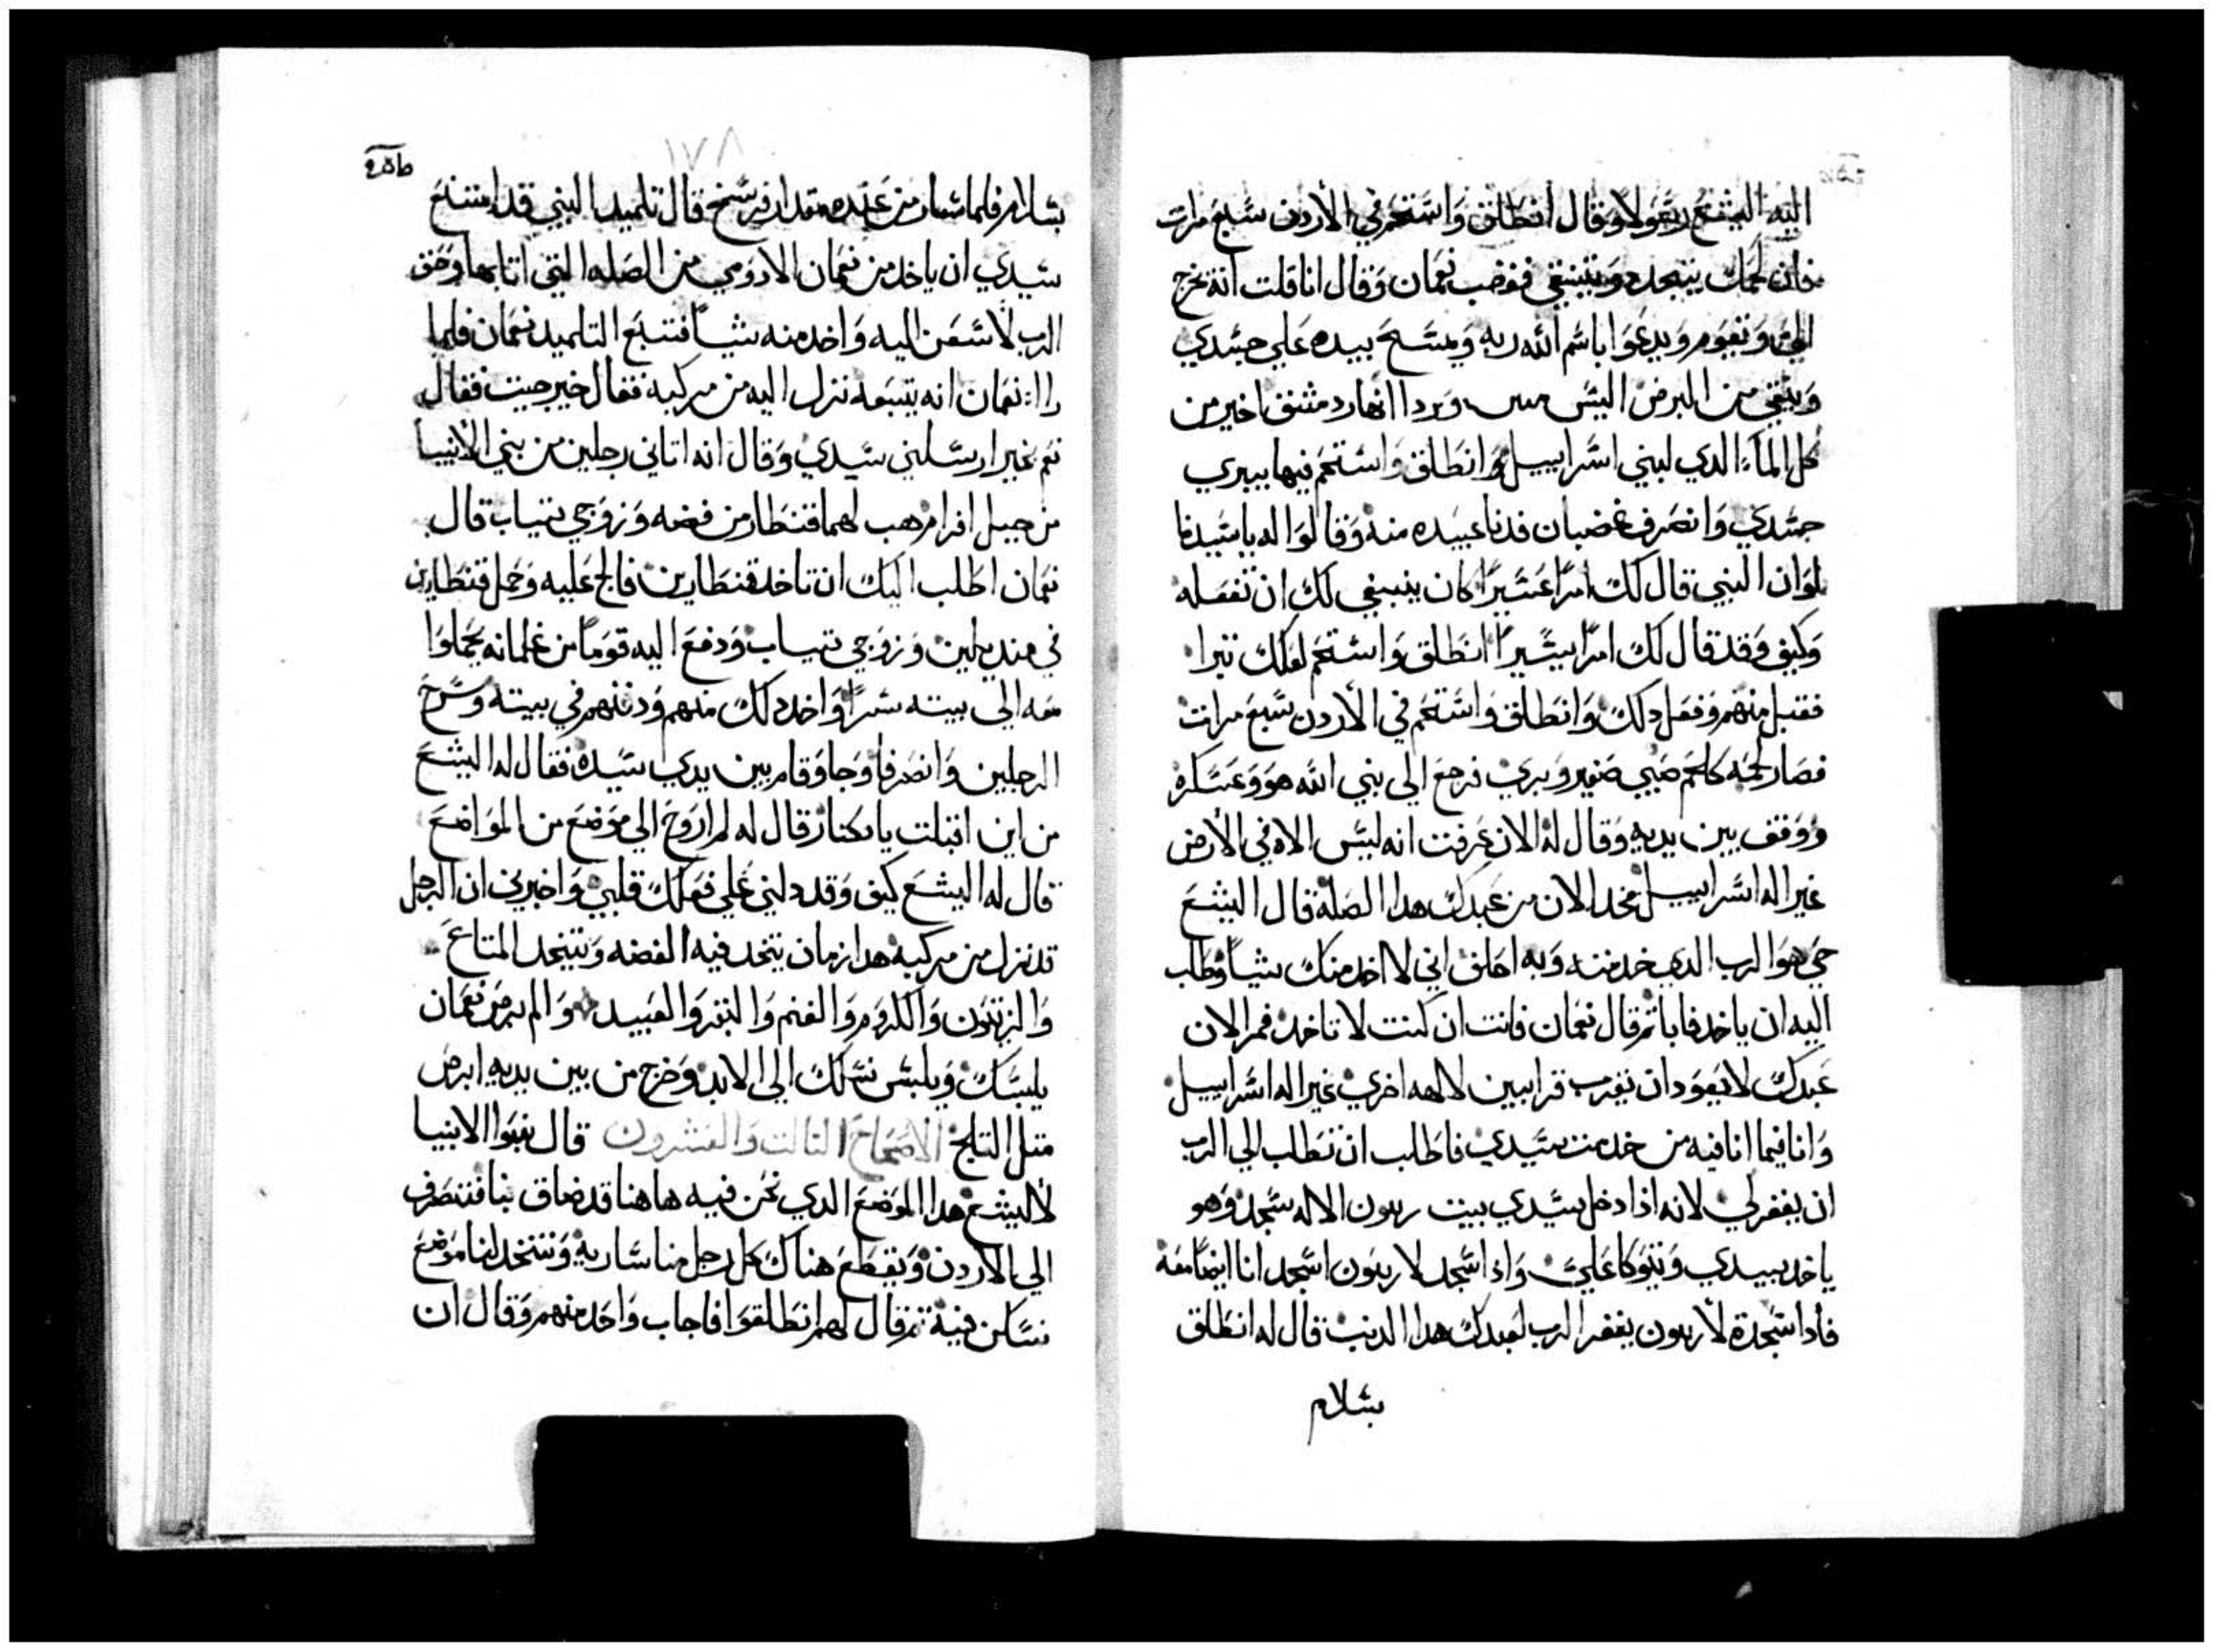 اليه اليشع رسولا وقال انطلق واستحم في الأردن سبع مرات
فان لحمك يتجدد وتنتقي فغضب نعمان وقال انا قلت انه يخرج
الي ويقوم ويدعوا باسم الله ربه ويمسح بيده علي جسدي
وينقي من البرص اليس وبردا انهار دمشق اخير من
كل الماء الدي لبني اسراييل وانطلق واستحم فيها يبري
جسدي وانصرف غضبان فدنا عبيده منه وقالوا له يا سيدنا
لو ان النبي قال لك امرا عسيرا كان ينبغي لك ان تفعله
وكيف وقد قال لك امرا يسيرا انطلق واستحم لعلك تبرا
فقبل منهم وفعل دلك وانطلق واستحم في الأردن سبع مرات
فصار لحمه كلحم صبي صغير وبري فرجع الي نبي الله هو وعسكره
ووقف بين يديه وقال له الان عرفت انه ليس الاه في الأرض
غير اله اسراييل فخد الان من عبدك هدا الصله قال اليشع
حي هو الرب الدي خدمته وبه احلف اني لا اخد منك شيا وطلب
اليه ان ياخد فابا تم قال نعمان فانت ان كنت لا تاخد فمر الان
عبدك لا يعود ان يقرب قرابين لالهه اخري غير اله اسراييل
وانا فيما انا فيه من خدمت سيدي فاطلب ان تطلب الي الرب
ان يغفر لي لانه اذا دخل سيدي بيت رمون الاله سجد وهو
ياخد بيدي ويتوكا علي واذا سجد لا رمون اسجد انا ايضا معه
فأدا سجدة لأ رمون يغفر الرب لعبدك هدا الدنب قال له انطلق
بسلام
٨٧١
بسلام فلما سار من عنده مقدار فرسخ قال تلميد النبي قد امتنع
سيدي ان ياخد من نعمان الادومي من الصله التي اتا بها وحق
الرب لأسعن اليه واخد منه شيا فتبع التلميد نعمان فلما
راا نعمان انه يتبعه نزل اليه من مركبه فقال خير جيت فقال
نعم بخير ارسلني سيدي وقال انه اتاني رجلين من بني الأنبيا
من جبل افرام هب لهما قنطار من فضه وزوجي تياب قال
نعمان اطلب اليك ان تاخد قنطارين فالح عليه وحمل قنطارين
في منديلين وزوجي تياب ودفع اليه قوما من غلمانه يحملوا
معه الي بيته سرا واخد دلك منهم ودفنهم في بيته وسرح
الرجلين وانصرفا وجا وقام بين يدي سيده فقال له اليشع
من اين اقبلت يا مكار قال له لم اروح الي موضع من المواضع
قال له اليشع كيف وقد دلني علي فعلك قلبي واخبرني ان الرجل
قد نزل من مركبه هدا زمان يتخد فيه الفضه ويتخد المتاع
والزيتون والكروم والغنم والبقر والعبيد والم برص نعمان
يلبسك ويلبس نسلك الي الابد وخرج من بين يديه ابرص
متل التلج الأصحاح التالت والعشرون قال بنوا الانبيا
لأليشع هدا الموضع الدي نحن فيه هاهنا قد ضاق بنا فننصرف
الي الأردن ونقطع هناك كل رجل منا ساريه ونتخد لنا موضع
نسكن فيه تم قال لهم انطلقوا فاجاب واحد منهم وقال ان